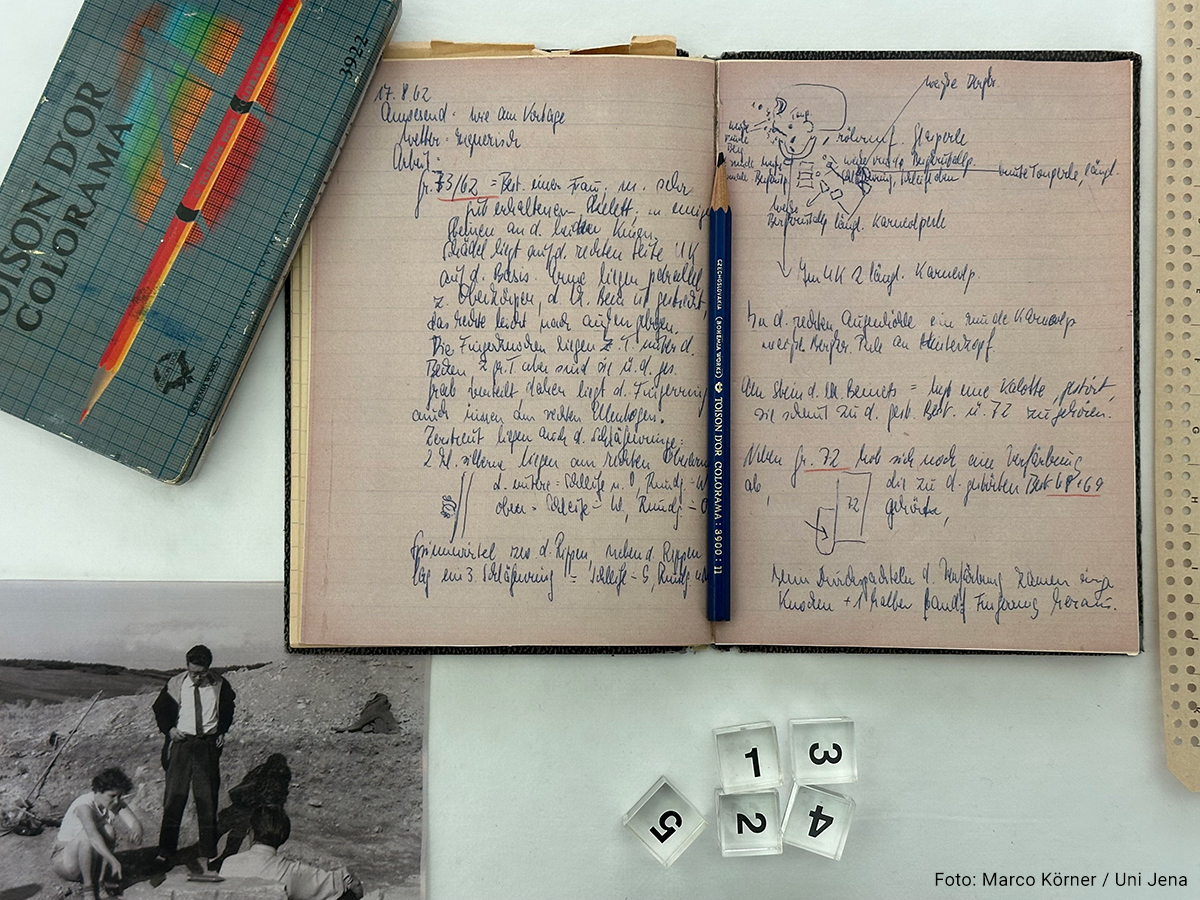 TOISON D'OR
COLORAMA
3922
17.8.62
Anwesend: wie am Vortage
Wetter: regnerisch
Arbeit:
gr. 73/62 = Best. einer Frau m. sehr
gut erhaltenem Skelett in
Steinen an d. beiden Knien.
Schädel liegt auf d. rechten Seite UK
auf d. Basis. Arme liegen parallel
z. Oberkörper, d. lk. Bein ist gestreckt,
das rechte leicht nach außen gebogen.
Die Fingerknochen liegen z. T. unter d.
Becken z. gr. T. aber sind sie ü. d. ges.
Grab verteilt daher liegt d. Fingerring
auch innen am rechten Ellenbogen.
Zerstreut liegen auch d. Schläfenringe:
2 kl. silberne liegen am rechten Oberarm
d. untere = Schleife n. O, Rundg - W
obere = Schleife - W, Rundg - O
Spinnwirtel zw. d. Rippen, neben d. Rippen
lag ein 3. Schläfenring = Schleife - S, Rundg
röhrenf. Glasperle
bunte Tonperle, längl.
längl. Karneolperle
Im UK 2 längl. Karneolp.
In d. rechten Augenhöhle eine runde Karneolp
am Hinterkopf.
Am Stein d. lk. Beines = liegt eine Kalotte, gestört,
sie scheint zu d. gest. Best. ü. 72 zu gehören.
Neben gr. 72 hob sich noch eine Verfärbung
ab, die zu d. gestörten Best 68+69
gehörte,
72
Beim Durchspachteln d. Verfärbung kamen einige
Knochen + 1 halber Fingerring heraus.
CZECHOSLOVAKIA (BOHEMIA WORKS) TOISON D'OR COLORAMA : 3900 : 11
1
3
5
2
4
Foto: Marco Körner / Uni Jena